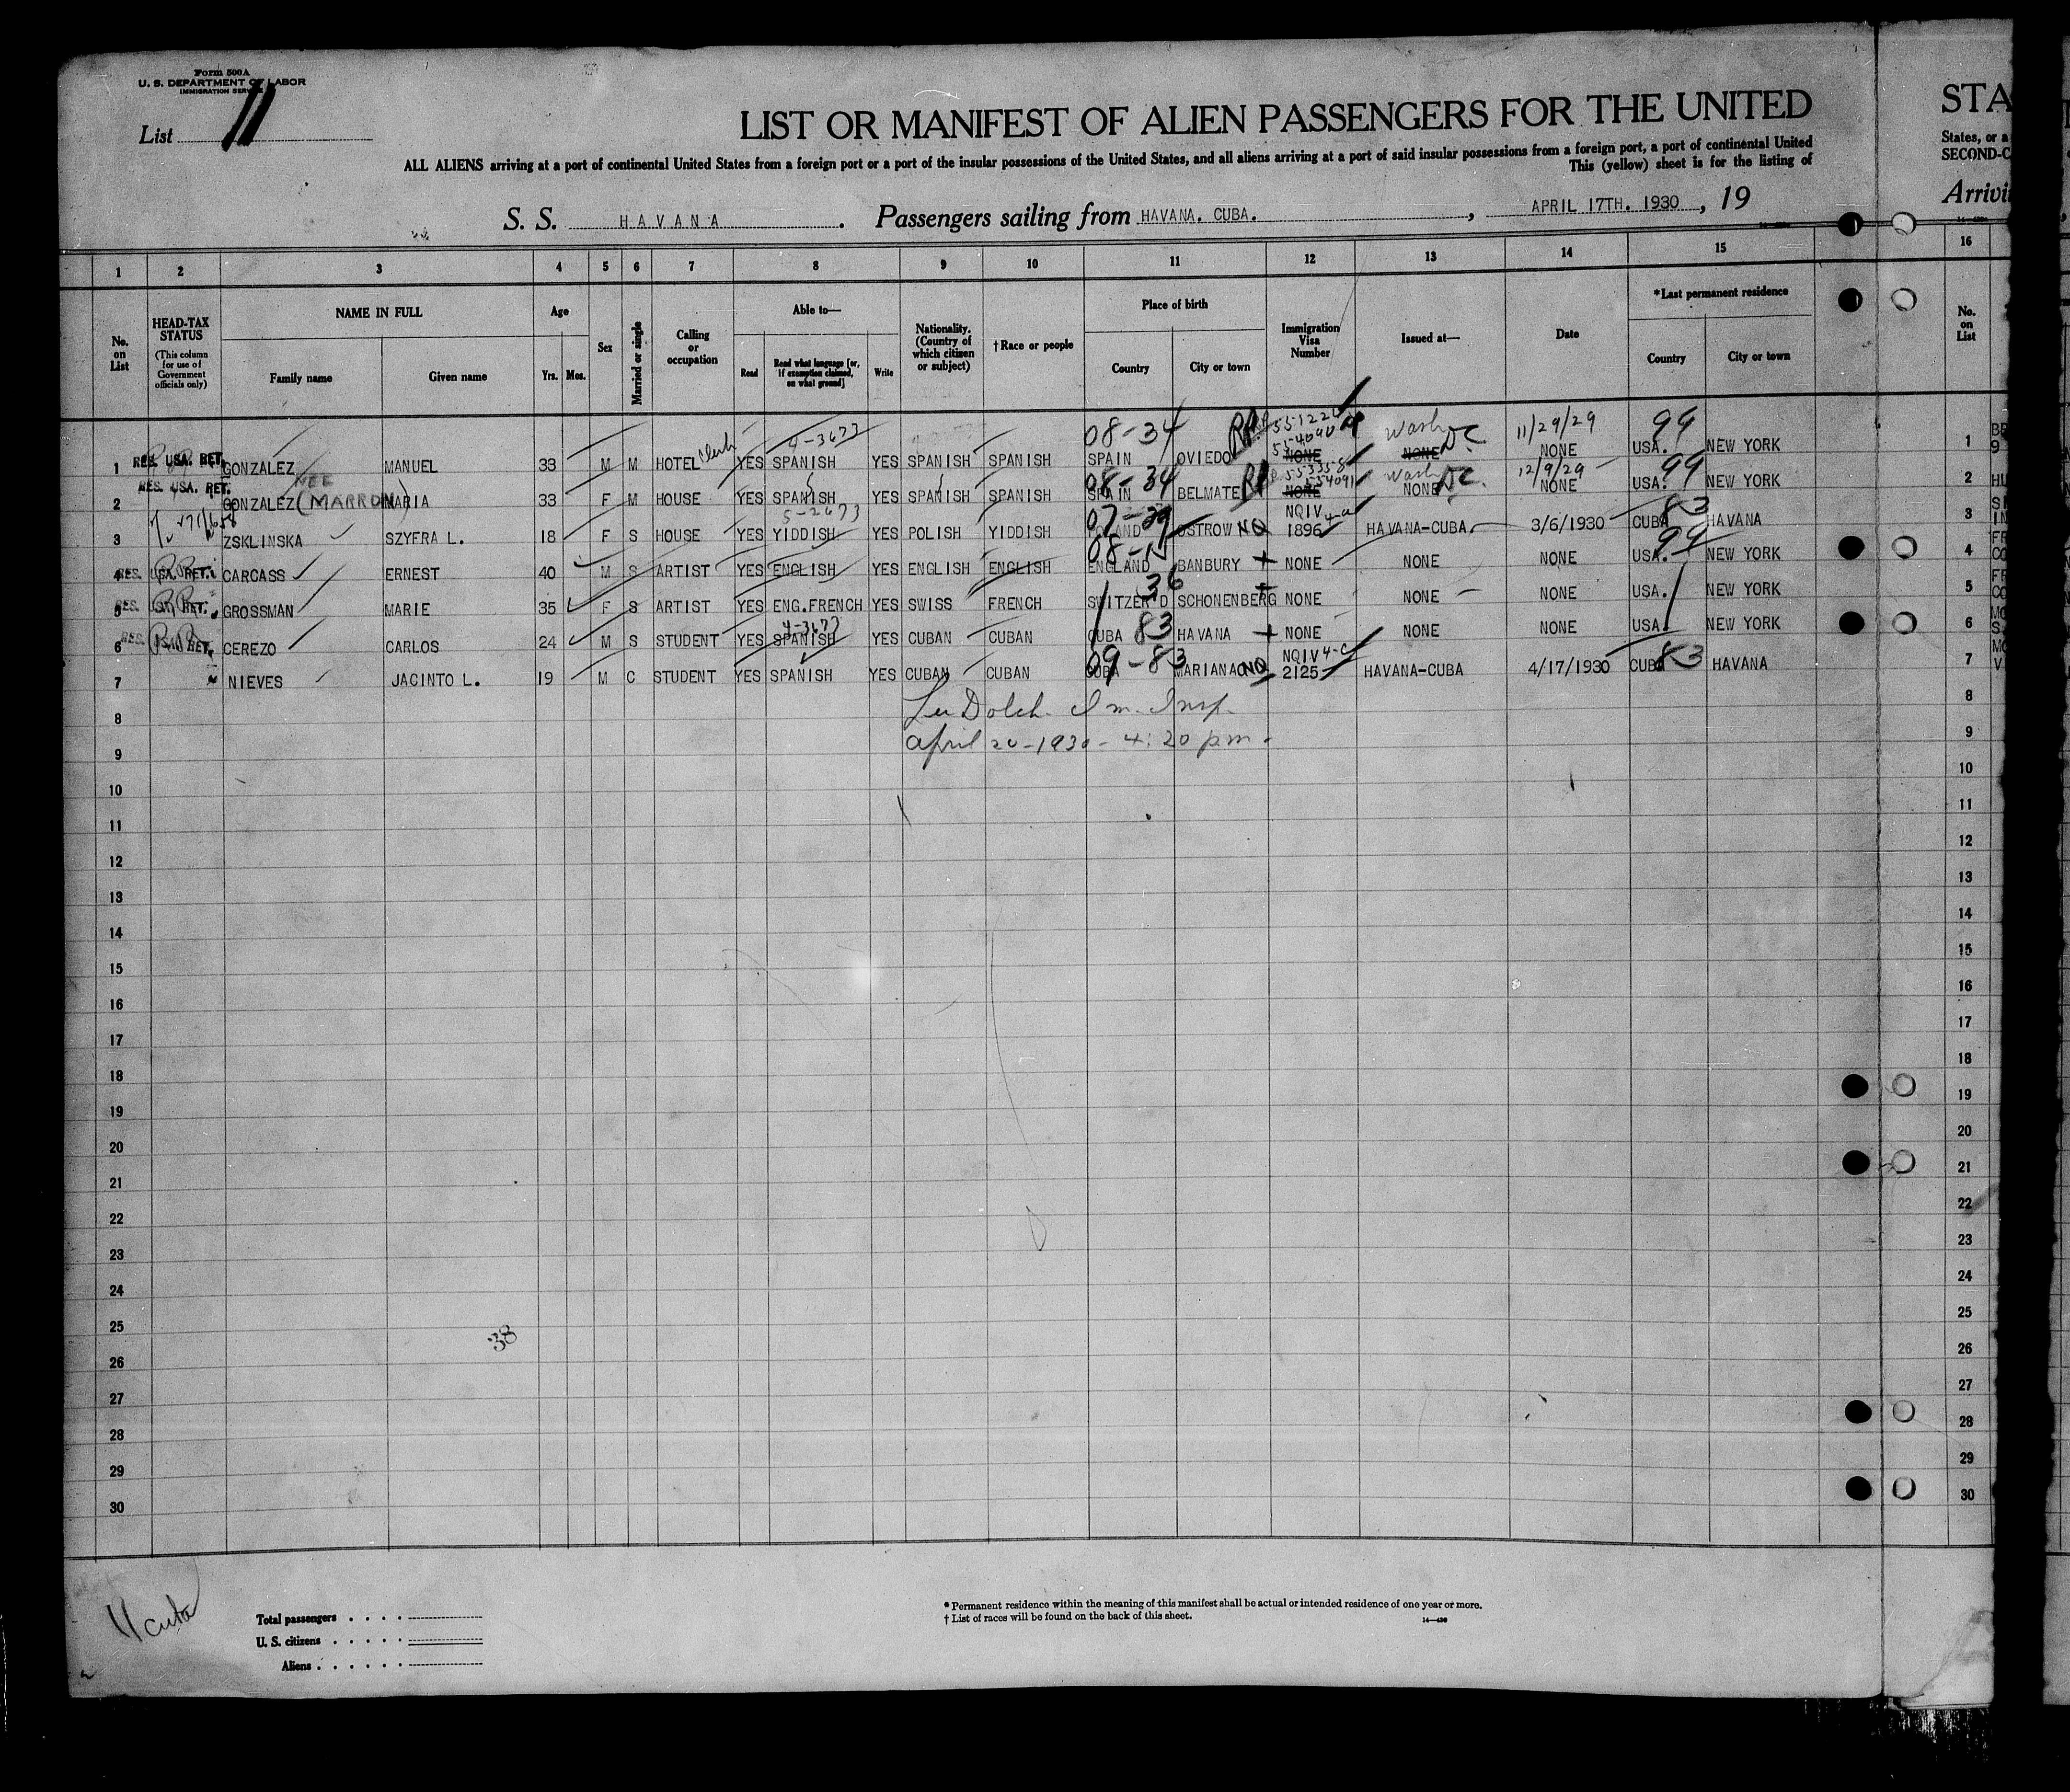 Form 500A
U. S. DEPARTMENT OF LABOR
IMMIGRATION SERVICE
List 11
LIST OR MANIFEST OF ALIEN PASSENGERS FOR THE UNITED
STA
ALL ALIENS arriving at a port of continental United States from a foreign port or a port of the insular possessions of the United States, and all aliens arriving at a port of said insular possessions from a foreign port, a port of continental United
States, or a
This (yellow) sheet is for the listing of
SECOND-C
S. S. HAVANA. Passengers sailing from HAVANA. CUBA. , APRIL 17TH. 1930 , 19
Arrivi
1 2 3 4 5 6 7 8 9 10 11 12 13 14 15 16
No. on List
HEAD-TAX STATUS (This column for use of Government officials only)
NAME IN FULL
Family name Given name
Age
Yrs. Mos.
Sex
Married or single
Calling or occupation
Able to—
Read Read what language [or, if exemption claimed, on what ground] Write
Nationality. (Country of which citizen or subject)
†Race or people
Place of birth
Country City or town
Immigration Visa Number
Issued at—
Date
*Last permanent residence
Country City or town
No. on List
4-3673 08-34 Wash DC 11/29/29 99
1 RES. USA. RET. GONZALEZ MANUEL 33 M M HOTEL Clerk YES SPANISH YES SPANISH SPANISH SPAIN OVIEDO NONE NONE NONE USA. NEW YORK 1
NEE 08-34 Wash DC. 12/9/29 99
2 RES. USA. RET. GONZALEZ (MARRON) MARIA 33 F M HOUSE YES SPANISH YES SPANISH SPANISH SPAIN BELMATE NONE NONE NONE USA. NEW YORK 2
5-2673 NQIV 4-a 83
3 ZSKLINSKA SZYFRA L. 18 F S HOUSE YES YIDDISH YES POLISH YIDDISH POLAND OSTROW NQ 1896 HAVANA-CUBA. 3/6/1930 CUBA HAVANA 3
99
4 RES. USA. RET. CARCASS ERNEST 40 M S ARTIST YES ENGLISH YES ENGLISH ENGLISH ENGLAND BANBURY NONE NONE NONE USA. NEW YORK 4
36
5 RES. USA. RET. GROSSMAN MARIE 35 F S ARTIST YES ENG.FRENCH YES SWISS FRENCH SWITZER'D SCHONENBERG NONE NONE NONE USA. NEW YORK 5
4-3673 83
6 RES. USA. RET. CEREZO CARLOS 24 M S STUDENT YES SPANISH YES CUBAN CUBAN CUBA HAVANA NONE NONE NONE USA. NEW YORK 6
09-83 NQIV 4-c 83
7 NIEVES JACINTO L. 19 M C STUDENT YES SPANISH YES CUBAN CUBAN CUBA MARIANAO NQ 2125 HAVANA-CUBA 4/17/1930 CUBA HAVANA 7
8 Im. Insp. 8
9 April 20-1930- 4:20 pm. 9
10 10
11 11
12 12
13 13
14 14
15 15
16 16
17 17
18 18
19 19
20 20
21 21
22 22
23 23
24 24
25 25
38
26 26
27 27
28 28
29 29
30 30
11 cuba
Total passengers
U. S. citizens
Aliens
* Permanent residence within the meaning of this manifest shall be actual or intended residence of one year or more.
† List of races will be found on the back of this sheet.
14—430